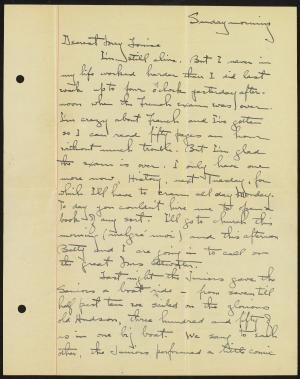 Sunday morning
Dearest Tony Louise
I'm still alive. But I never in
my life worked harder than I did last
week up to four o'clock yesterday after-
noon when the French exam was over.
I'm crazy about French and I've gotten
so I can read fifty pages an hour
without much trouble. But I'm glad
the exam is over. I only have one
more now, History, next Tuesday, for
which I'll have to cram all day Monday.
To-day you couldn't hire me to open a
book of any sort. I'll go to church this
morning (malgré moi) and this afternoon
Betty and I are going to call on
the great
Last night the Juniors gave the
Seniors a boat ride - from seven till
half past ten we sailed on the glorious
old Hudson, three hundred and fifty of
us in one big boat. We sang to each
other, the Juniors performed a little comic